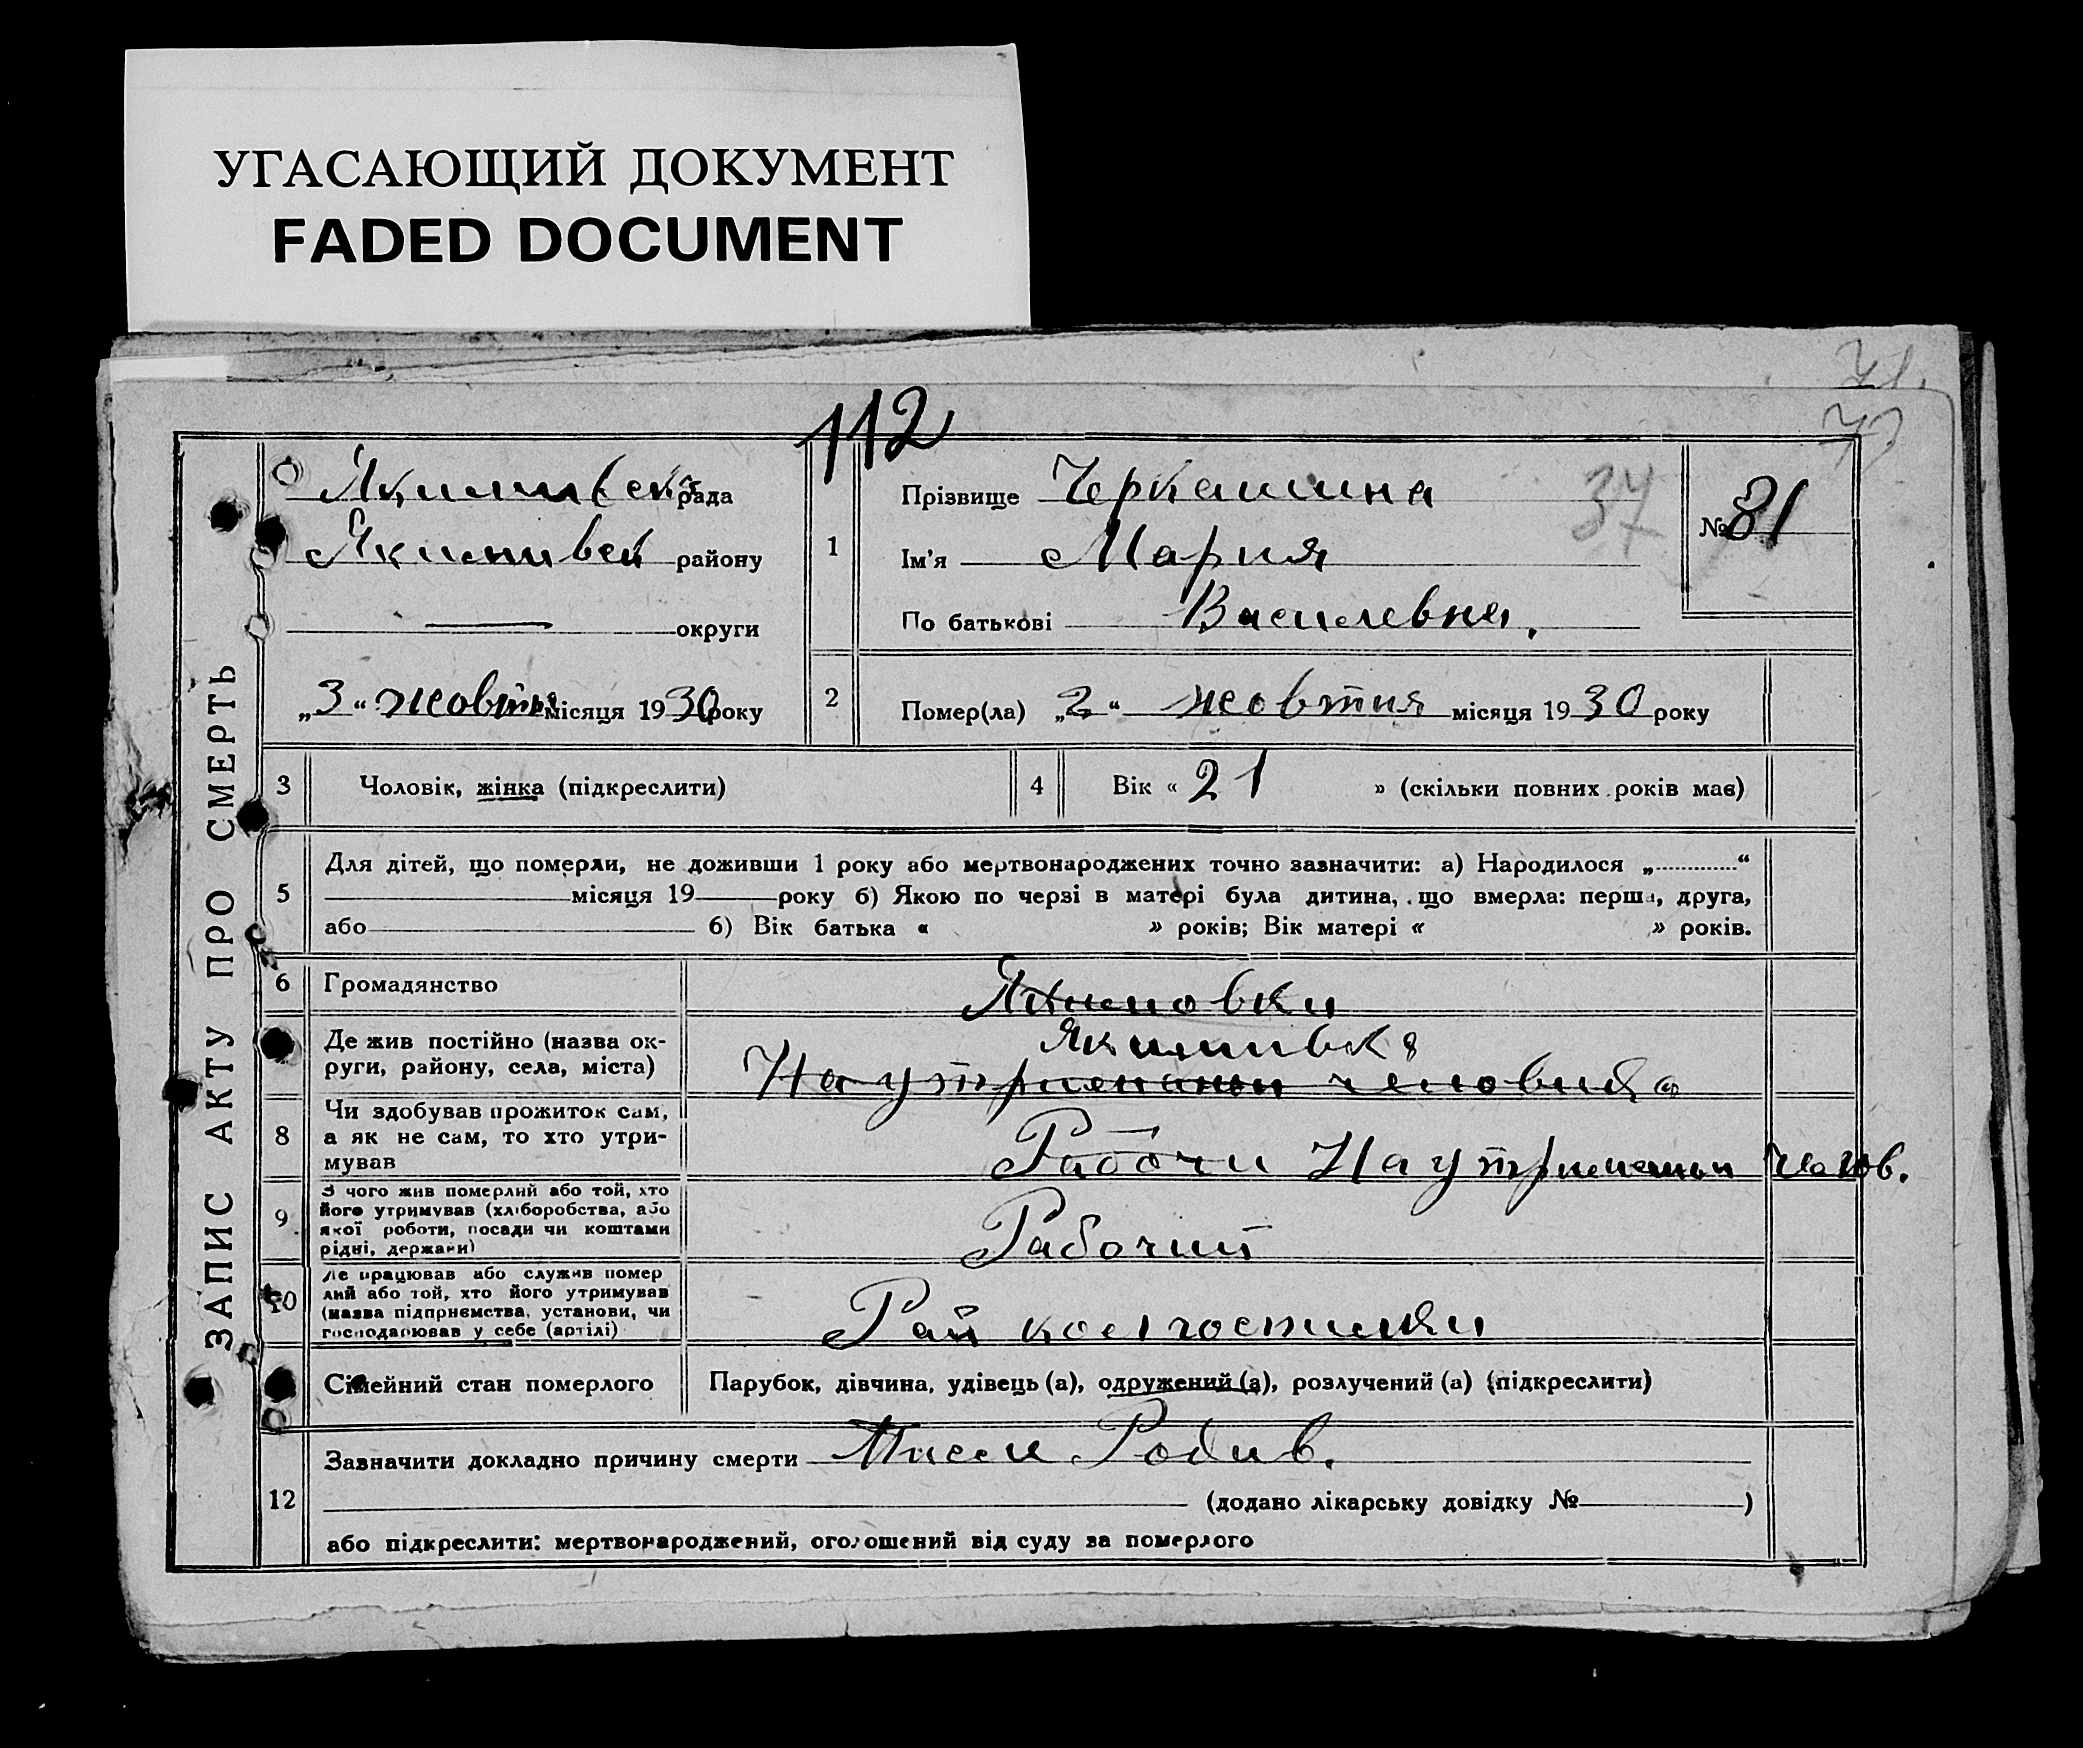 УГАСАЮЩИЙ ДОКУМЕНТ
FADED DOCUMENT
71.
112
ЗАПИС АКТУ ПРО СМЕРТЬ
Якимивска рада
Якимивск району
— округи
„3“ жовтня місяця 1930 року
1
Прізвище Черкашина
37
№ 81
Ім’я Мария
По батькові Василевна.
2
Помер(ла) „2“ жовтня місяця 1930 року
3
Чоловік, жінка (підкреслити)
4
Вік « 21 » (скільки повних років має)
5
Для дітей, що померли, не доживши 1 року або мертвонароджених точно зазначити: а) Народилося „ “
місяця 19 року б) Якою по черзі в матері була дитина, що вмерла: перша, друга,
або б) Вік батька « » років; Вік матері « » років.
6
Громадянство
Якимовки
Де жив постійно (назва ок-
руги, району, села, міста)
Якимивка
На утримании человика
8
Чи здобував прожиток сам,
а як не сам, то хто утри-
мував
Рабочи На утримании
9
З чого жив померлий або той, хто
його утримував (хліборобства, або
якої роботи, посади чи коштами
рідні, держави)
Рабочий
10
Де працював або служив помер
лий або той, хто його утримував
(назва підприємства, установи, чи
господарював у себе (артілі)
Рай
Сімейний стан померлого
Парубок, дівчина, удівець (а), одружений (а), розлучений (а) (підкреслити)
12
Зазначити докладно причину смерти
(додано лікарську довідку № )
або підкреслити: мертвонароджений, оголошений від суду за померлого